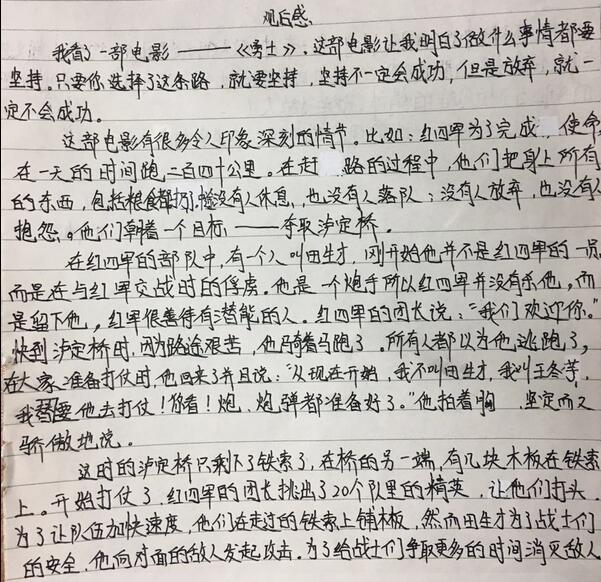 观后感
我看了一部电影——《勇士》,这部电影让我明白了做什么事情都要
坚持。只要你选择了这条路,就要坚持,坚持不一定会成功,但是放弃,就一
定不会成功。
这部电影有很多令人印象深刻的情节。比如:红四军为了完成 使命
在一天的时间跑二百四十公里。在赶 路的过程中,他们把身上所有
的东西,包括粮食都扔了,没有人休息,也没有人落队;没有人放弃,也没有人
抱怨。他们朝着一个目标——夺取泸定桥。
在红四军的部队中,有一个人叫田生才,刚开始他并不是红四军的一员
而是在与红军交战时的俘虏。他是一个炮手所以红四军并没有杀他,而
是留下他,红军很善待有潜能的人。红四军的团长说:“我们欢迎你。”
快到泸定桥时,因为路途艰苦,他骑着马跑了。所有人都以为他逃跑了,
在大家准备打仗时,他回来了并且说:“从现在开始,我不叫田生才,我叫王冬
我替他去打仗!你看!炮、炮弹都准备好了。”他拍着胸 坚定而又
骄傲地说。
这时的泸定桥只剩下了铁索了,在桥的另一端,有几块木板在铁索
上。开始打仗了,红四军的团长挑出了20个队里的精英,让他们打头
为了让队伍加快速度,他们在走过的铁索上铺木板,然而田生才为了战士们
的安全,他向对面的敌人发起攻击。为了给战士们争取更多的时间消灭敌人